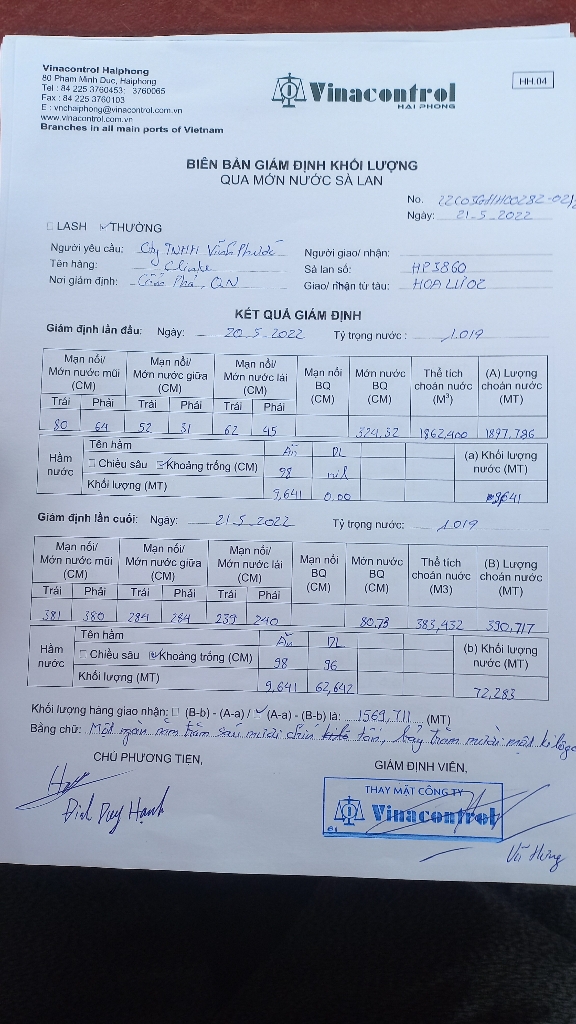 Vinacontrol Haiphong
80 Pham Minh Duc, Haiphong
Tel : 84 225 3760453; 3760065
Fax : 84 225 3760103
E : vnchaiphong@vinacontrol.com.vn
www.vinacontrol.com.vn
Branches in all main ports of Vietnam
Vinacontrol
HAI PHONG
HH.04
BIÊN BẢN GIÁM ĐỊNH KHỐI LƯỢNG
QUA MỚN NƯỚC SÀ LAN
No. 22C03GHH00282-02/
Ngày: 21-5-2022
LASH THƯỜNG
Người yêu cầu: Cty TNHH Vĩnh Phước Người giao/ nhận:
Tên hàng: Clinke Sà lan số: HP3860
Nơi giám định: Cẩm Phả, QN Giao/ nhận từ tàu: HOA LƯ 02
KẾT QUẢ GIÁM ĐỊNH
Giám định lần đầu: Ngày: 20-5-2022 Tỷ trọng nước : 1.019
Mạn nổi/ Mớn nước mũi (CM) Mạn nổi/ Mớn nước giữa (CM) Mạn nổi/ Mớn nước lái (CM) Mạn nổi BQ (CM) Mớn nước BQ (CM) Thể tích choán nước (M³) (A) Lượng choán nước (MT)
Trái Phải Trái Phải Trái Phải
80 64 52 31 62 45 324,32 1862,400 1897,786
Hầm nước Tên hầm AĐ DL (a) Khối lượng nước (MT)
Chiều sâu Khoảng trống (CM) 98 nil
Khối lượng (MT) 9,641 0.00 9,641
Giám định lần cuối: Ngày: 21-5-2022 Tỷ trọng nước: 1.019
Mạn nổi/ Mớn nước mũi (CM) Mạn nổi/ Mớn nước giữa (CM) Mạn nổi/ Mớn nước lái (CM) Mạn nổi BQ (CM) Mớn nước BQ (CM) Thể tích choán nước (M3) (B) Lượng choán nước (MT)
Trái Phải Trái Phải Trái Phải
381 380 284 264 239 240 80.73 383,432 390,717
Hầm nước Tên hầm AĐ DL (b) Khối lượng nước (MT)
Chiều sâu Khoảng trống (CM) 98 96
Khối lượng (MT) 9,641 62,642 72,283
Khối lượng hàng giao nhận: (B-b) - (A-a) / (A-a) - (B-b) là: 1569,711 (MT)
Bằng chữ: Một ngàn năm trăm sáu mươi chín tấn, bảy trăm mười một kilôg
CHỦ PHƯƠNG TIỆN, GIÁM ĐỊNH VIÊN,
THAY MẶT CÔNG TY
Vinacontrol
Đinh Duy Hạnh
Vũ Hưng